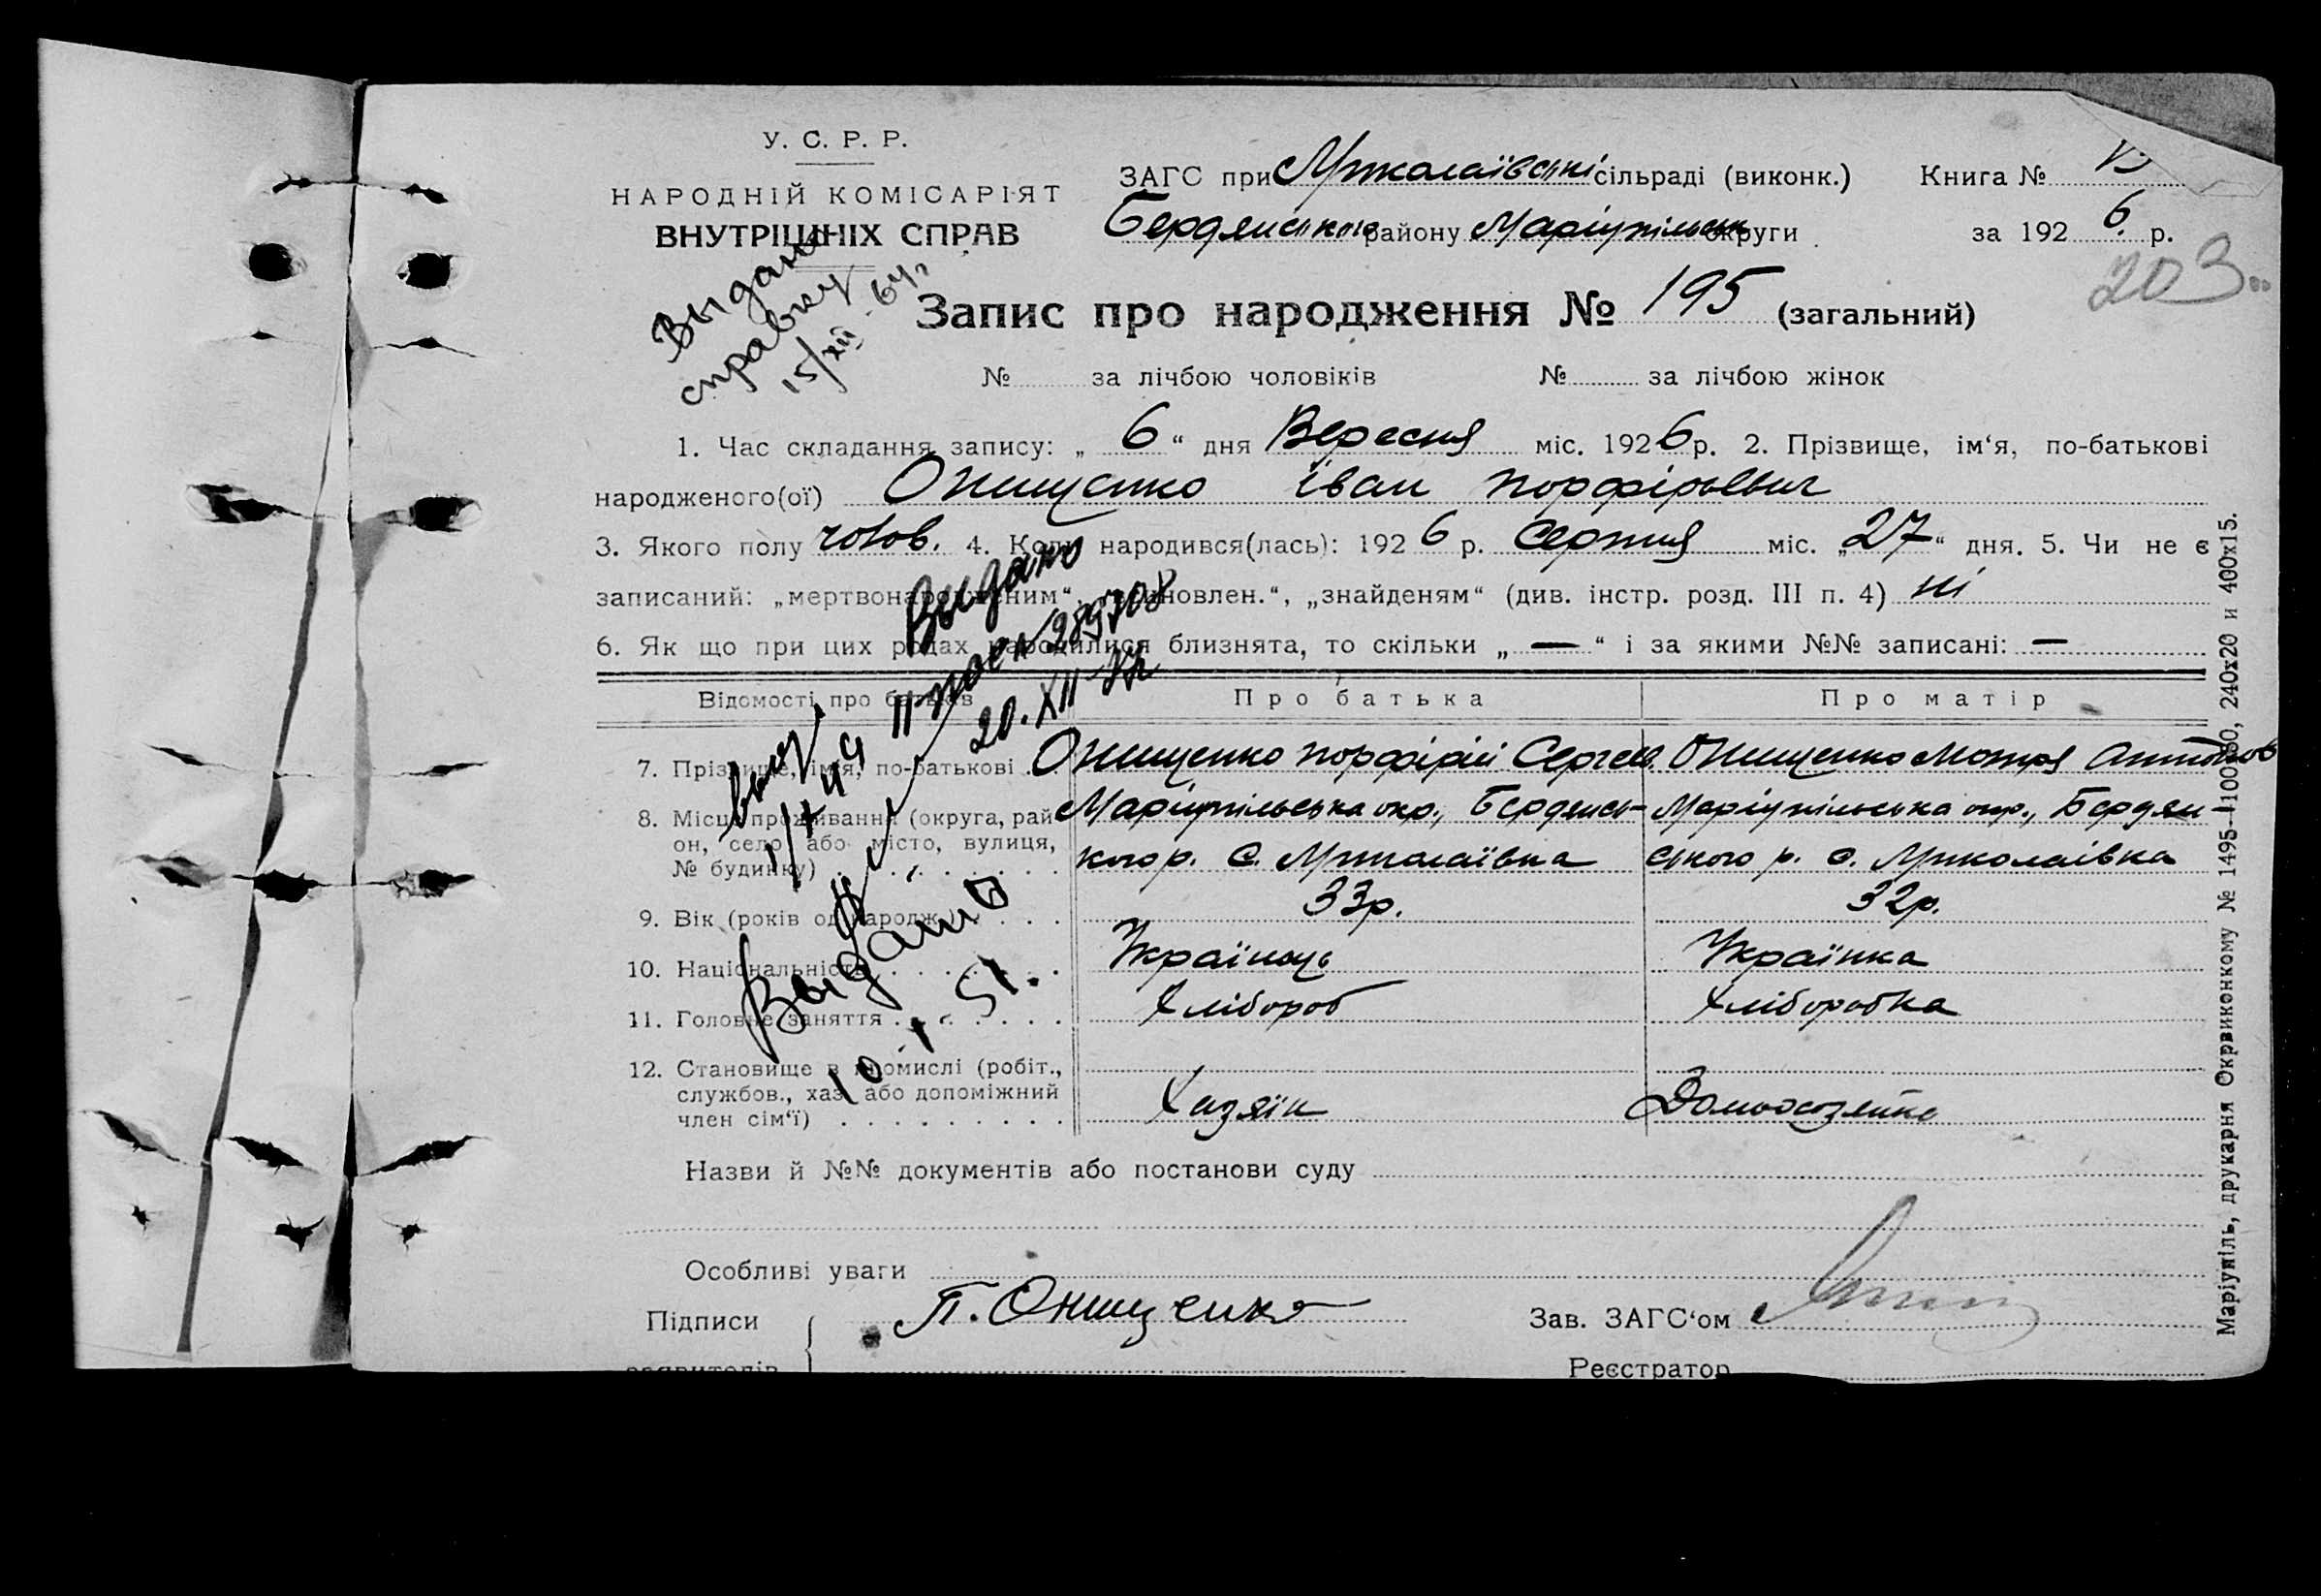 У. С. Р. Р.
НАРОДНІЙ КОМІСАРІЯТ
ВНУТРІШНІХ СПРАВ
ЗАГС при Миколаївській сільраді (виконк.) Книга №
Бердянського району Маріупільськ округи за 1926 р.
203
Выдано
справку
15/XII 64 г
Запис про народження № 195 (загальний)
№ за лічбою чоловіків № за лічбою жінок
1. Час складання запису: „ 6 “ дня Вересня міс. 1926 р. 2. Прізвище, ім‘я, по-батькові
народженого(ої) Онищенко Іван Порфірьевич
3. Якого полу чолов. 4. Коли народився(лась): 1926 р. Серпня міс. „ 27 “ дня. 5. Чи не є
записаний: „мертвонародженим“, новлен.“, „знайденям“ (див. інстр. розд. III п. 4) ні
6. Як що при цих родах народилися близнята, то скільки „ — “ і за якими №№ записані: —
Выдано
20. XII
Відомості про батьків Про батька Про матір
7. Прізвище, імя, по-батькові Онищенко Порфірій Сергеев. Онищенко Мотря Антонов
8. Місце проживання (округа, рай Маріупільська окр., Бердянсь- Маріупільська окр., Бердян
он, село або місто, вулиця, кого р. с. Миколаївка ського р. с. Миколаівка
№ будинку)
9. Вік (років од народж.) 33р. 32р.
10. Національність Українець Українка
11. Головне заняття Хлібороб Хліборобка
Выдано
10 51.
12. Становище в промислі (робіт.,
службов., хаз. або допоміжний Хазяїн Домохозяйка
член сім‘ї)
Назви й №№ документів або постанови суду
Особливі уваги
Підписи П. Онищенко Зав. ЗАГС‘ом
заявителів Реєстратор
Маріупіль, друкарня Окрвиконкому № 1495—100 240х20 и 400х15.